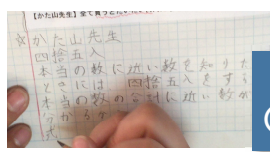 【かた山先生】全て買うと
☆かた山先生
四捨五入
本当の数に近い数を知りた
ときには 四捨五入をす
本当の数の合計に近い数が
分かる
式